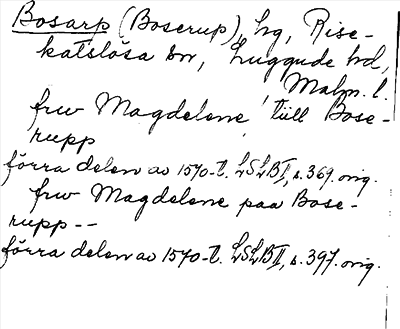 Bosarp (Boserup), hg, Rise-
katslösa sn, Luggude hd,
Malm. l.
frw Magdelene tüll Bose-
rupp
förra delen av 1570-t. LSLB II, s. 369. orig.
frw Magdelene paa Bose-
rupp --
förra delen av 1570-t. LSLB II, s. 397. orig.